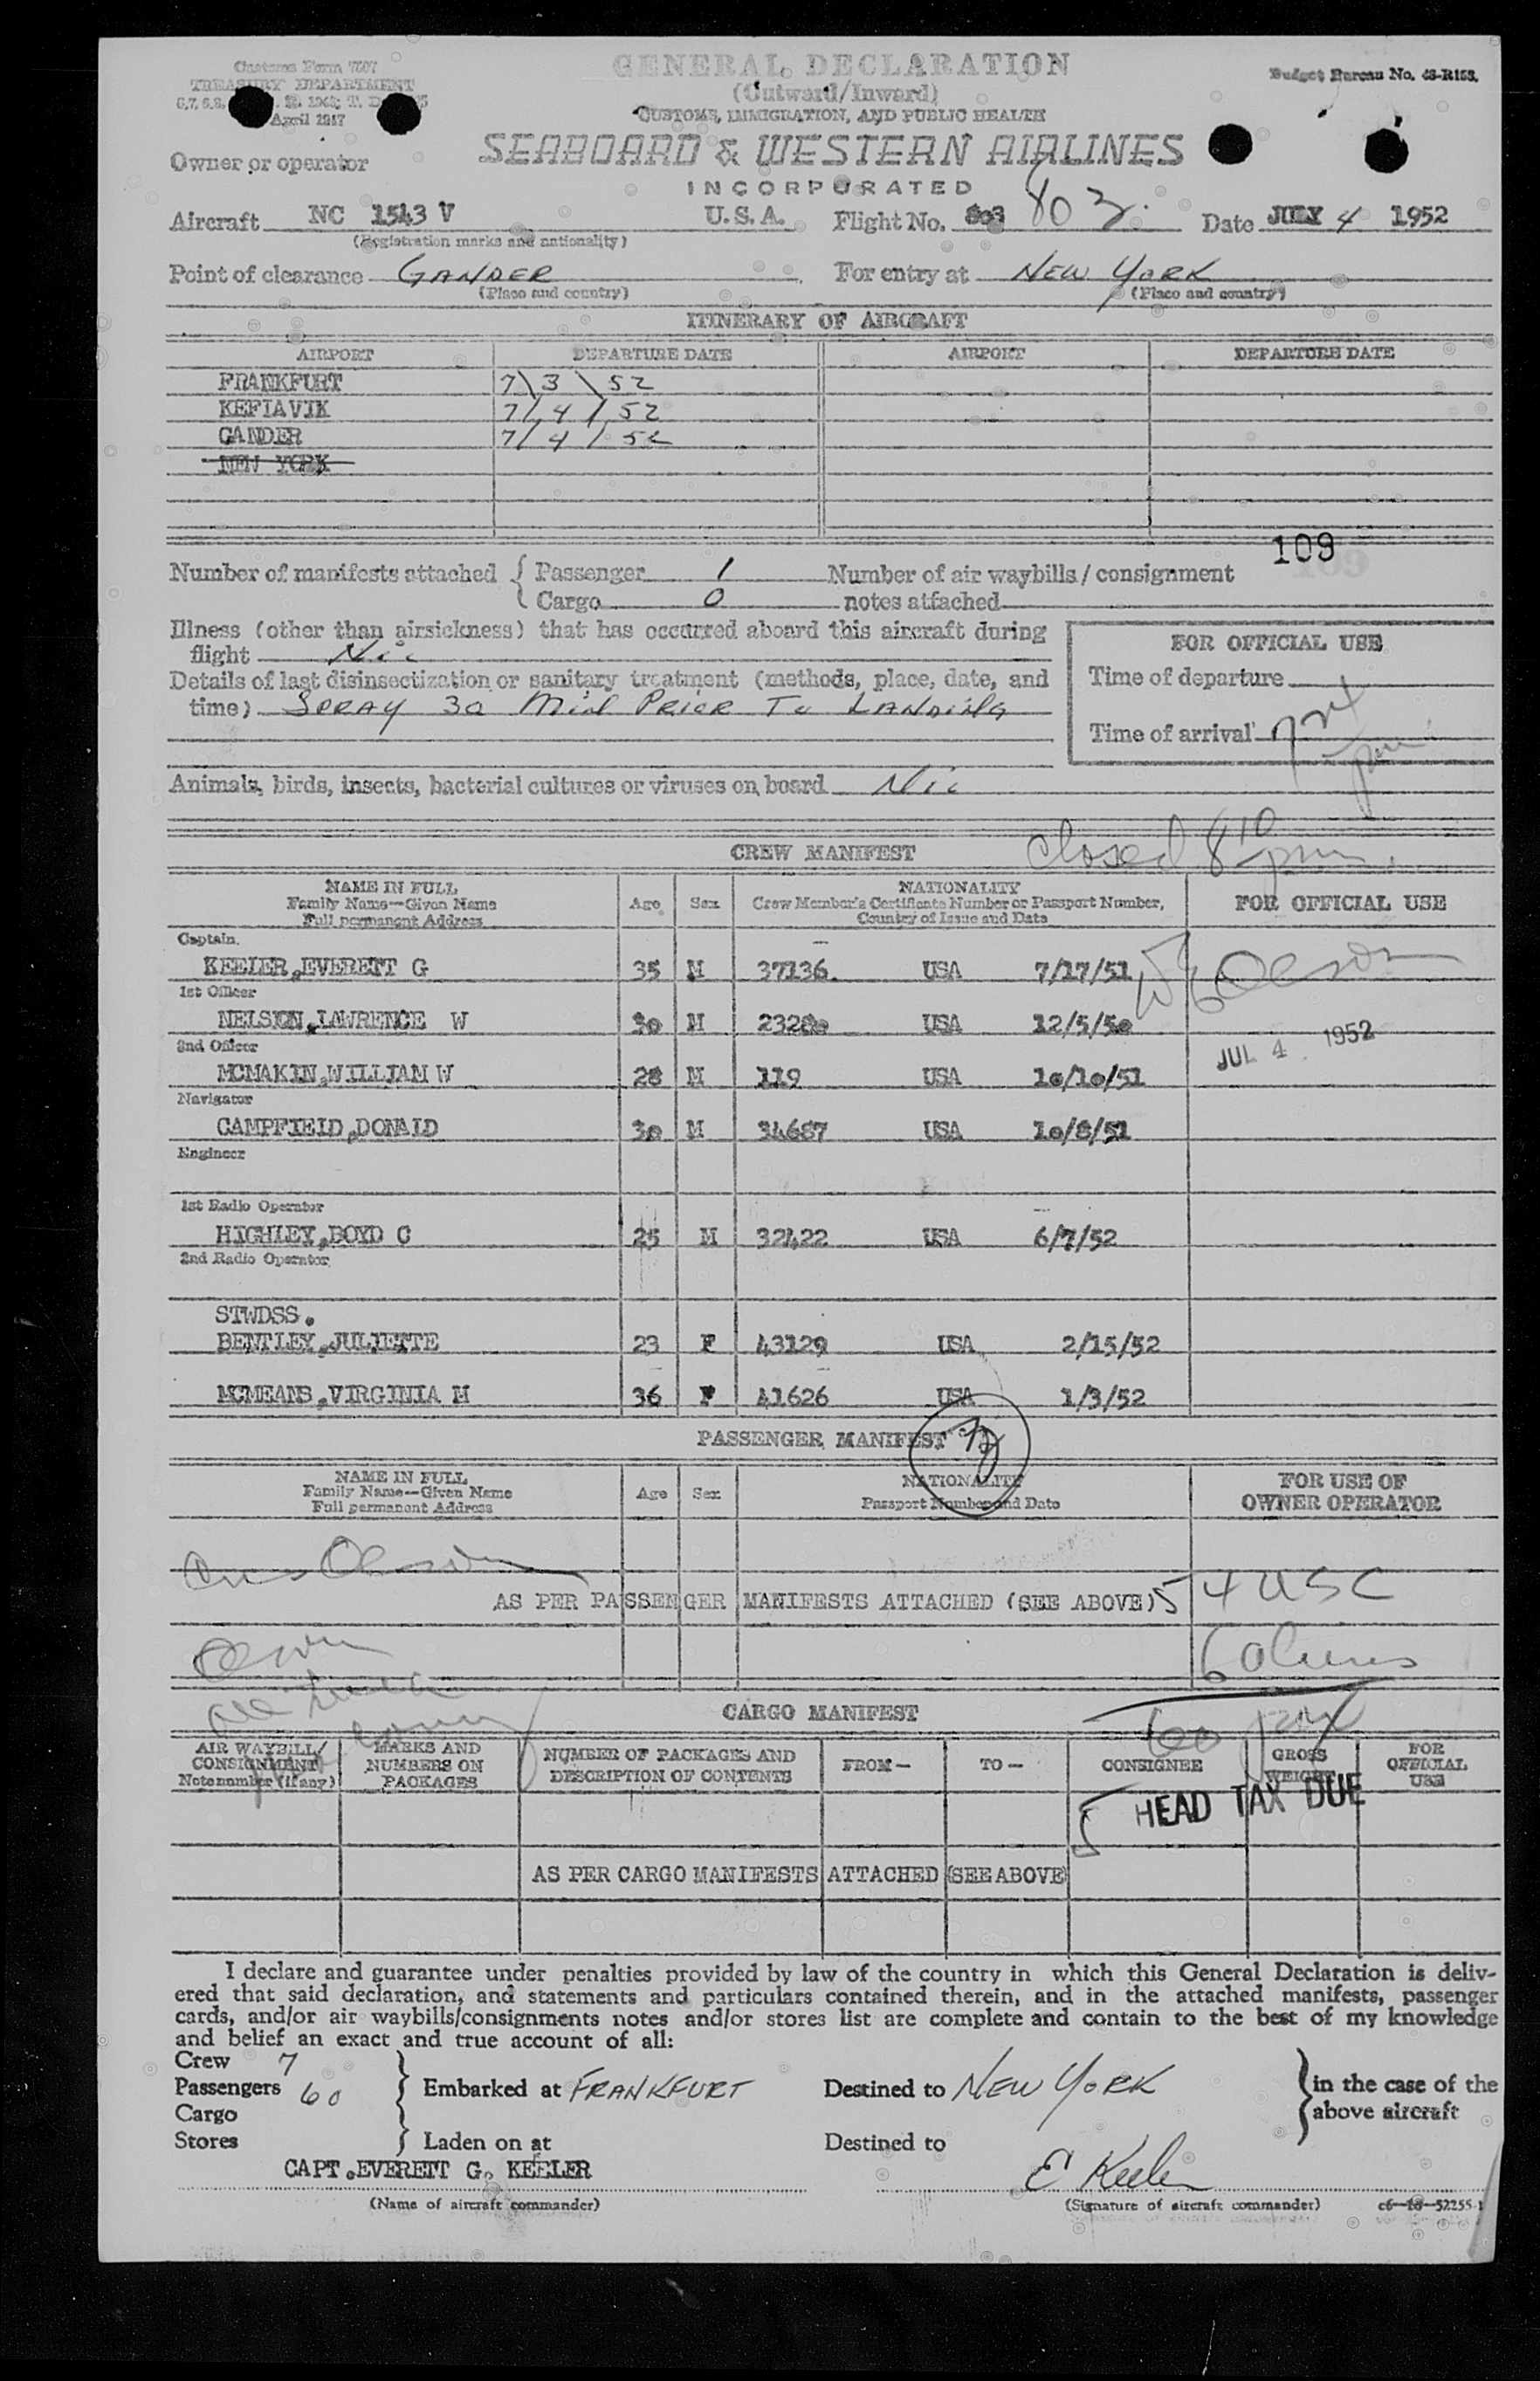 Customs Form 7507
TREASURY DEPARTMENT
April 1947
GENERAL DECLARATION
(Outward/Inward)
CUSTOMS, IMMIGRATION, AND PUBLIC HEALTH
Budget Bureau No.
Owner or operator
SEABOARD & WESTERN AIRLINES
INCORPORATED
Aircraft NC 1543 V U.S.A. Flight No. 803 803. Date JULY 4 1952
(Registration marks and nationality)
Point of clearance GANDER For entry at NEW YORK
(Place and country) (Place and country)
ITINERARY OF AIRCRAFT
AIRPORT DEPARTURE DATE AIRPORT DEPARTURE DATE
FRANKFURT 7\3\52
KEFIAVIK 7/4/52
GANDER 7/4/52
NEW YORK
109
Number of manifests attached { Passenger 1 Number of air waybills/consignment
Cargo 0 notes attached
Illness (other than airsickness) that has occurred aboard this aircraft during
flight Nil
Details of last disinsectization or sanitary treatment (methods, place, date, and
time) SPRAY 30 MIN PRIOR TO LANDING
FOR OFFICIAL USE
Time of departure
Time of arrival pm
Animals, birds, insects, bacterial cultures or viruses on board Nil
closed 8 10 pm.
CREW MANIFEST
NAME IN FULL
Family Name—Given Name
Full permanent Address
Age Sex
NATIONALITY
Crew Member's Certificate Number or Passport Number,
Country of Issue and Date
FOR OFFICIAL USE
Captain.
KEELER,EVERETT G 35 M 37136. USA 7/17/51
1st Officer
NELSON,LAWRENCE W 30 M 23280 USA 12/5/50
2nd Officer
MCMAKIN,WILLIAM W 28 M 119 USA 10/10/51
JUL 4 1952
Navigator
CAMPFIEID,DONAID 30 M 34687 USA 10/8/51
Engineer
1st Radio Operator
HIGHLEY,BOYD C 25 M 32422 USA 6/7/52
2nd Radio Operator
STWDSS.
BENTLEY,JULIETTE 23 F 43129 USA 2/15/52
MCMEANS,VIRGINIA M 36 F 41626 USA 1/3/52
PASSENGER MANIFEST
NAME IN FULL
Family Name—Given Name
Full permanent Address
Age Sex
NATIONALITY
Passport Number and Date
FOR USE OF
OWNER OPERATOR
Olson
AS PER PASSENGER MANIFESTS ATTACHED (SEE ABOVE) 54 USC
Olson
6 aliens
CARGO MANIFEST
60 pax
AIR WAYBILL/
CONSIGNMENT
Note number (if any)
MARKS AND
NUMBERS ON
PACKAGES
NUMBER OF PACKAGES AND
DESCRIPTION OF CONTENTS
FROM—
TO—
CONSIGNEE
GROSS
WEIGHT
FOR
OFFICIAL
USE
5 HEAD TAX DUE
AS PER CARGO MANIFESTS ATTACHED (SEE ABOVE)
I declare and guarantee under penalties provided by law of the country in which this General Declaration is deliv-
ered that said declaration, and statements and particulars contained therein, and in the attached manifests, passenger
cards, and/or air waybills/consignments notes and/or stores list are complete and contain to the best of my knowledge
and belief an exact and true account of all:
Crew 7
Passengers 60 Embarked at FRANKFURT Destined to NEW YORK in the case of the
Cargo above aircraft
Stores Laden on at Destined to
CAPT.EVERETT G. KEELER E Keeler
(Name of aircraft commander) (Signature of aircraft commander) c6—16—52255-1